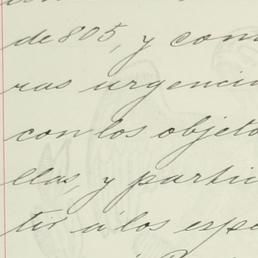 de 805, y com
ras urgencia
con los objeto
llas, y partic
tir á los espo